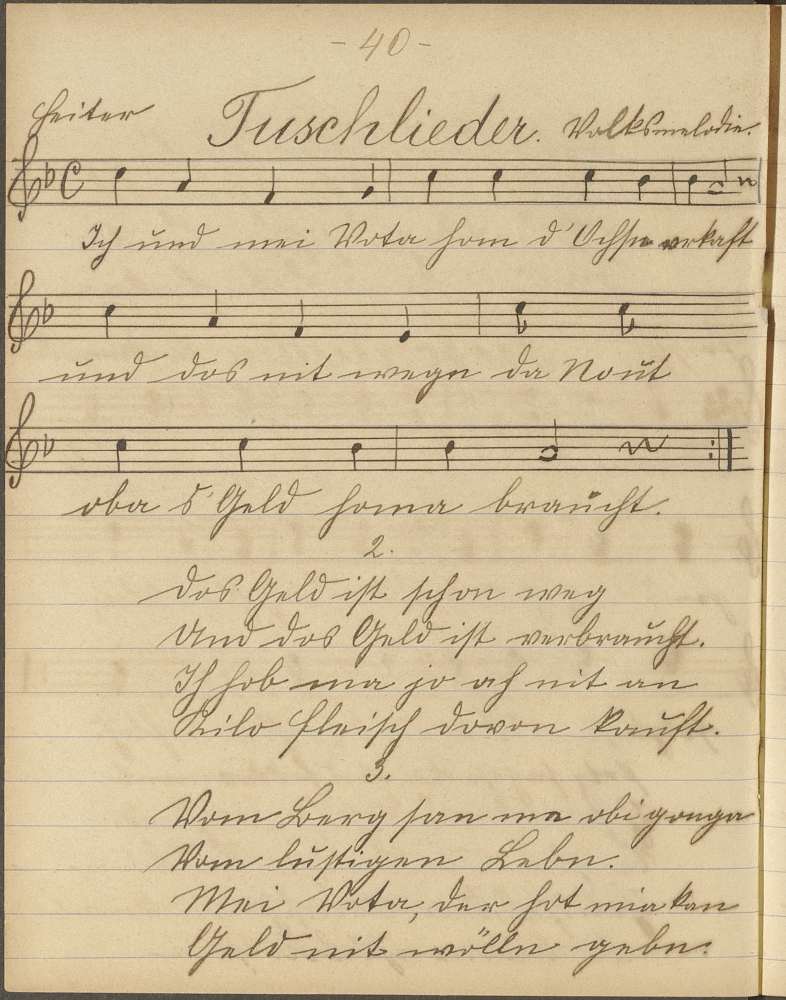 - 40 -
Heiter Tuschlieder. Volksmelodie.
Ich und mei Vota hom d' Ochsn verkaft
und dos nit wegn da Nout
oba s' Geld homa braucht.
2.
Dos Geld ist schon weg
Und dos Geld ist verbraucht.
Ich hob ma jo oh nit an
Kilo Fleisch dovon kauft.
3.
Vom Berg san ma obi gonga
Vom lustigen Lebn.
Mei Vota, der hot mia kan
Geld nit wölln gebn.